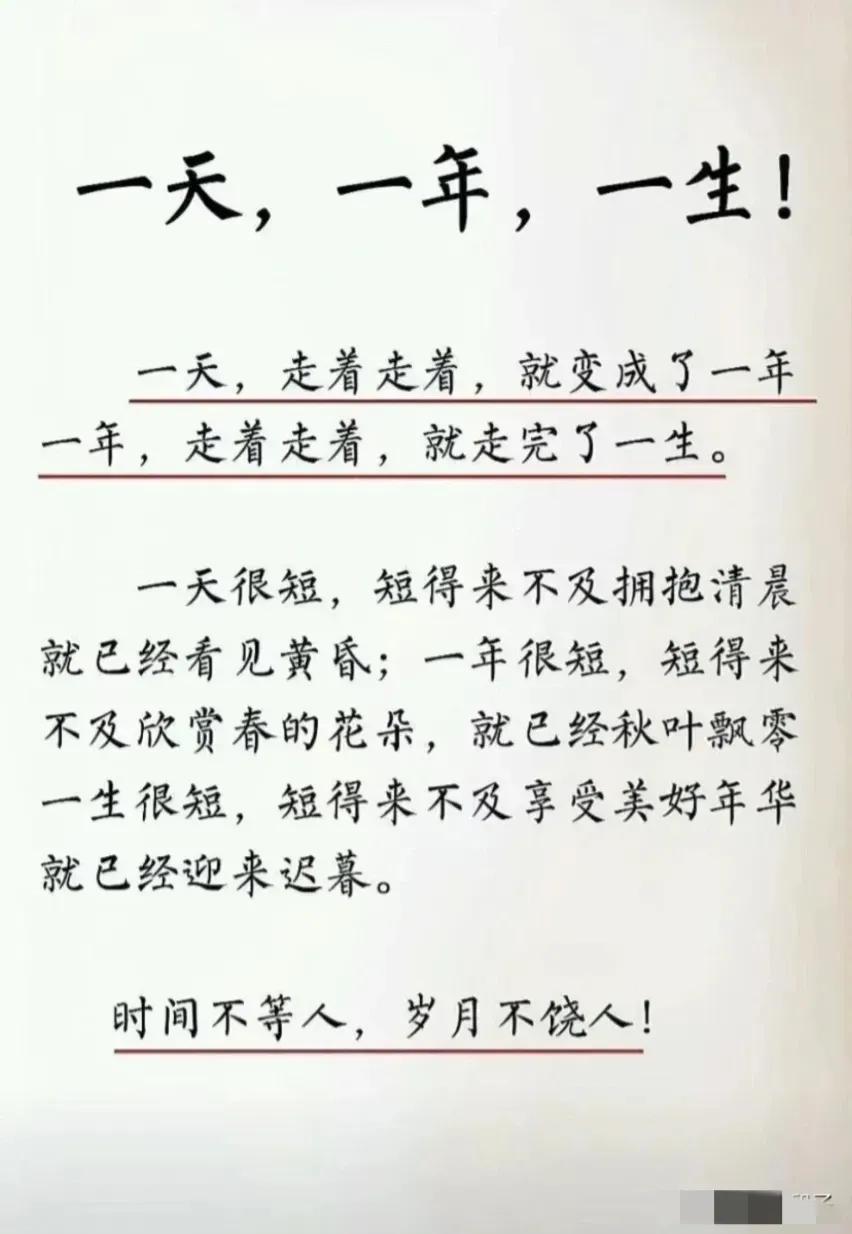 一天，一年，一生！
一天，走着走着，就变成了一年
一年，走着走着，就走完了一生。
一天很短，短得来不及拥抱清晨
就已经看见黄昏；一年很短，短得来
不及欣赏春的花朵，就已经秋叶飘零
一生很短，短得来不及享受美好年华
就已经迎来迟暮。
时间不等人，岁月不饶人！